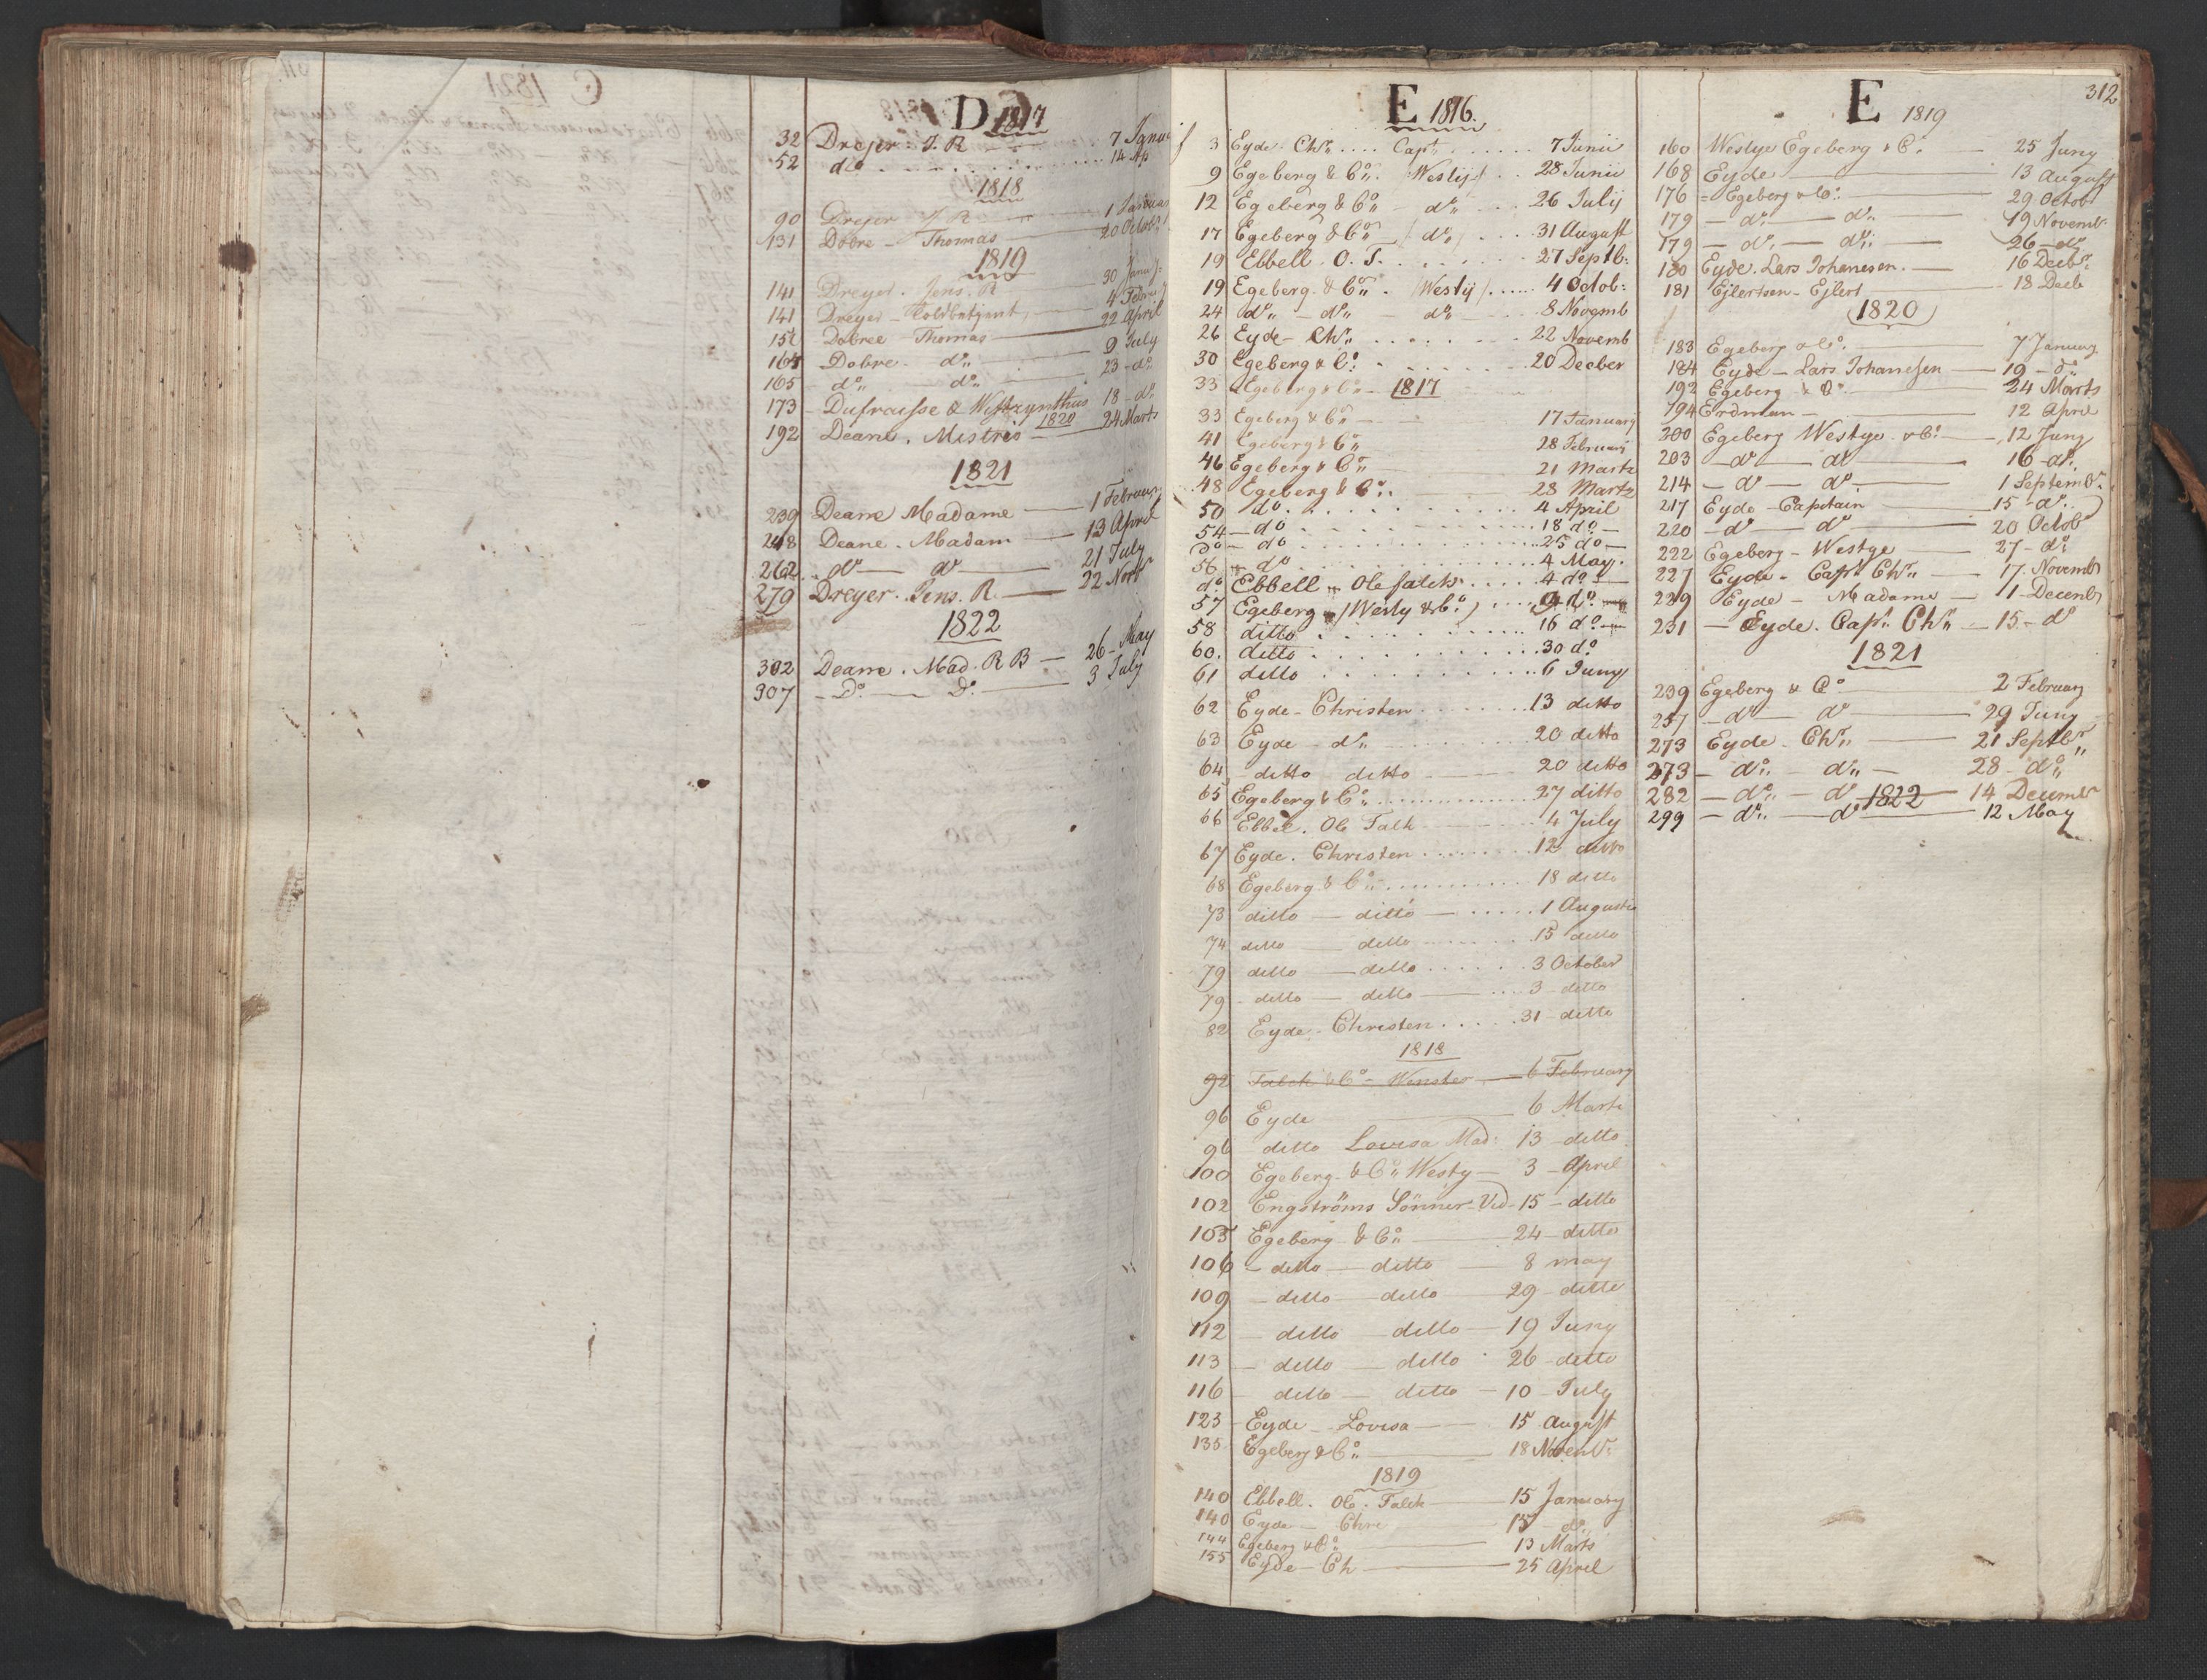 D 1817
32 Dreyer. J. R 7 Janua
52 do 14 Ap
1818
90 Dreyer J. R 1 Januar
131 Dobre - Thomas 20 Octob
1819
141 Dreyer. Jens. R 30 Janu
141 Dreyer - 4 Febru
22 April
Dobree - Thomas
164 Dobre - do 9 July
165 do do 23 - do
173 - Dufraisse & 18 - do
1820
192 Deane. Mistris 24 Marts
1821
239 Deane Madame 1 Februar
248 Deane. Madam 13 April
262 do do 21 July
279 Dreyer. Jens. R. 22 Novb
1822
302 Deane. Mad. R B 26 - May
307 - Do. Do. 3 July
E 1816.
3 Eyde. Chr. .... Capt. 7 Junii
9 Egeberg & Co. /Westy/ 28 Junii
12 Egeberg & Co - do 26 July
17 Egeberg & Co - /do/ 31 August
19 Ebbell O. F. 27 Septb:
19 Egeberg. & Co. /Westy/ 4 Octob:
24 do - do - do 8 Novemb
26 Eyde - Chr 22 Novemb
30 Egeberg & C: 20 Decber
33 Egeberg & Co - 1817
33 Egeberg & Co - 17 January
41 Egeberg & Co 28 Februari
46 Egeberg & Co 21 Marts
48 Egeberg & Co. 28 Marts
50 do 4 April
54 - do 18 do -
Do - do 25 do -
56 - do 4 May.
do. Ebbell Ole falck 4 do -
57 Egeberg /Westy & Co:/ 9 do -
58 ditto 16 do -
60. ditto 30 do
61 ditto 6 Juny
62 Eyde - Christen 13 ditto
63 Eyde - do 20 ditto
64 - ditto ditto 20 ditto
65 Egeberg & Co 27 ditto
66 Ebbel. Ole Falk 4 July
67 Eyde. Christen 12 ditto
68 Egeberg & Co 18 ditto
73 ditto - ditto 1 Augusti
74 ditto ditto 15 ditto
79 ditto - ditto 3 October
79 - ditto - ditto 3 - ditto
82 Eyde. Christen 31 - ditto
1818
92 Falck & Co - 6 February
96 Eyde 6 Marts
96 ditto Lovisa Mad: 13 - ditto
100 Egeberg - & Co Westy - 3 - April
102 Engströms Sönner - Vid - 15 - ditto
105 Egeberg & Co 24 - ditto
106 - ditto - ditto 8 may
109 - ditto - ditto 29 - ditto
112 - ditto ditto - 19 Juny
113 - ditto - ditto 26 - ditto
116 - ditto - ditto - 10 - July
123 - Eyde - Lovisa 15 August
135 Egeberg & Co 18 Novenb:
1819
140 Ebbell. Ole. Falck 15 January
140 Eyde - Chre 15 - do
144 Egeberg & Co 13 Marts
155 Eyde - Ch 25 April
312
E 1819
160 Westye Egeberg & C: 25 Juny
168 Eyde 13 August
176 = Egeberg & Co: 29 Octob
179 - do - do 19 Novemb
179 - do - do 26 - do
180 Eyde. Lars Johanesen. 16 Decb
181 Ejlertsen - Ejlert 18 Decb
1820
183 Egeberg & Co: 7 January
184 Eyde - Lars Johanesen 19 - do
192 Egeberg & Co 24 Marts
194 Erdman - 12 April
200 Egeberg Westye & C: 12 Juny
203 - do - do 16 - do
214 - do - do 1 Septemb
217 Eyde - Capitain 15 - do
220 - do - do 20 Octob
222 Egeberg - Westye 27 - do
227 Eyde - Capt Chr 17 Novemb
229 Eyde - Madame 11 - Decemb
231 - Eyde. Capt. Chr 15 - do
1821
239 Egeberg & Co 2 February
257 - do do 29 Juny
273 Eyde. Chr. 21 Septbr
273 - do - do - 28 - do
282 - do - do 14 Decembr
1822
299 - do - do 12 May